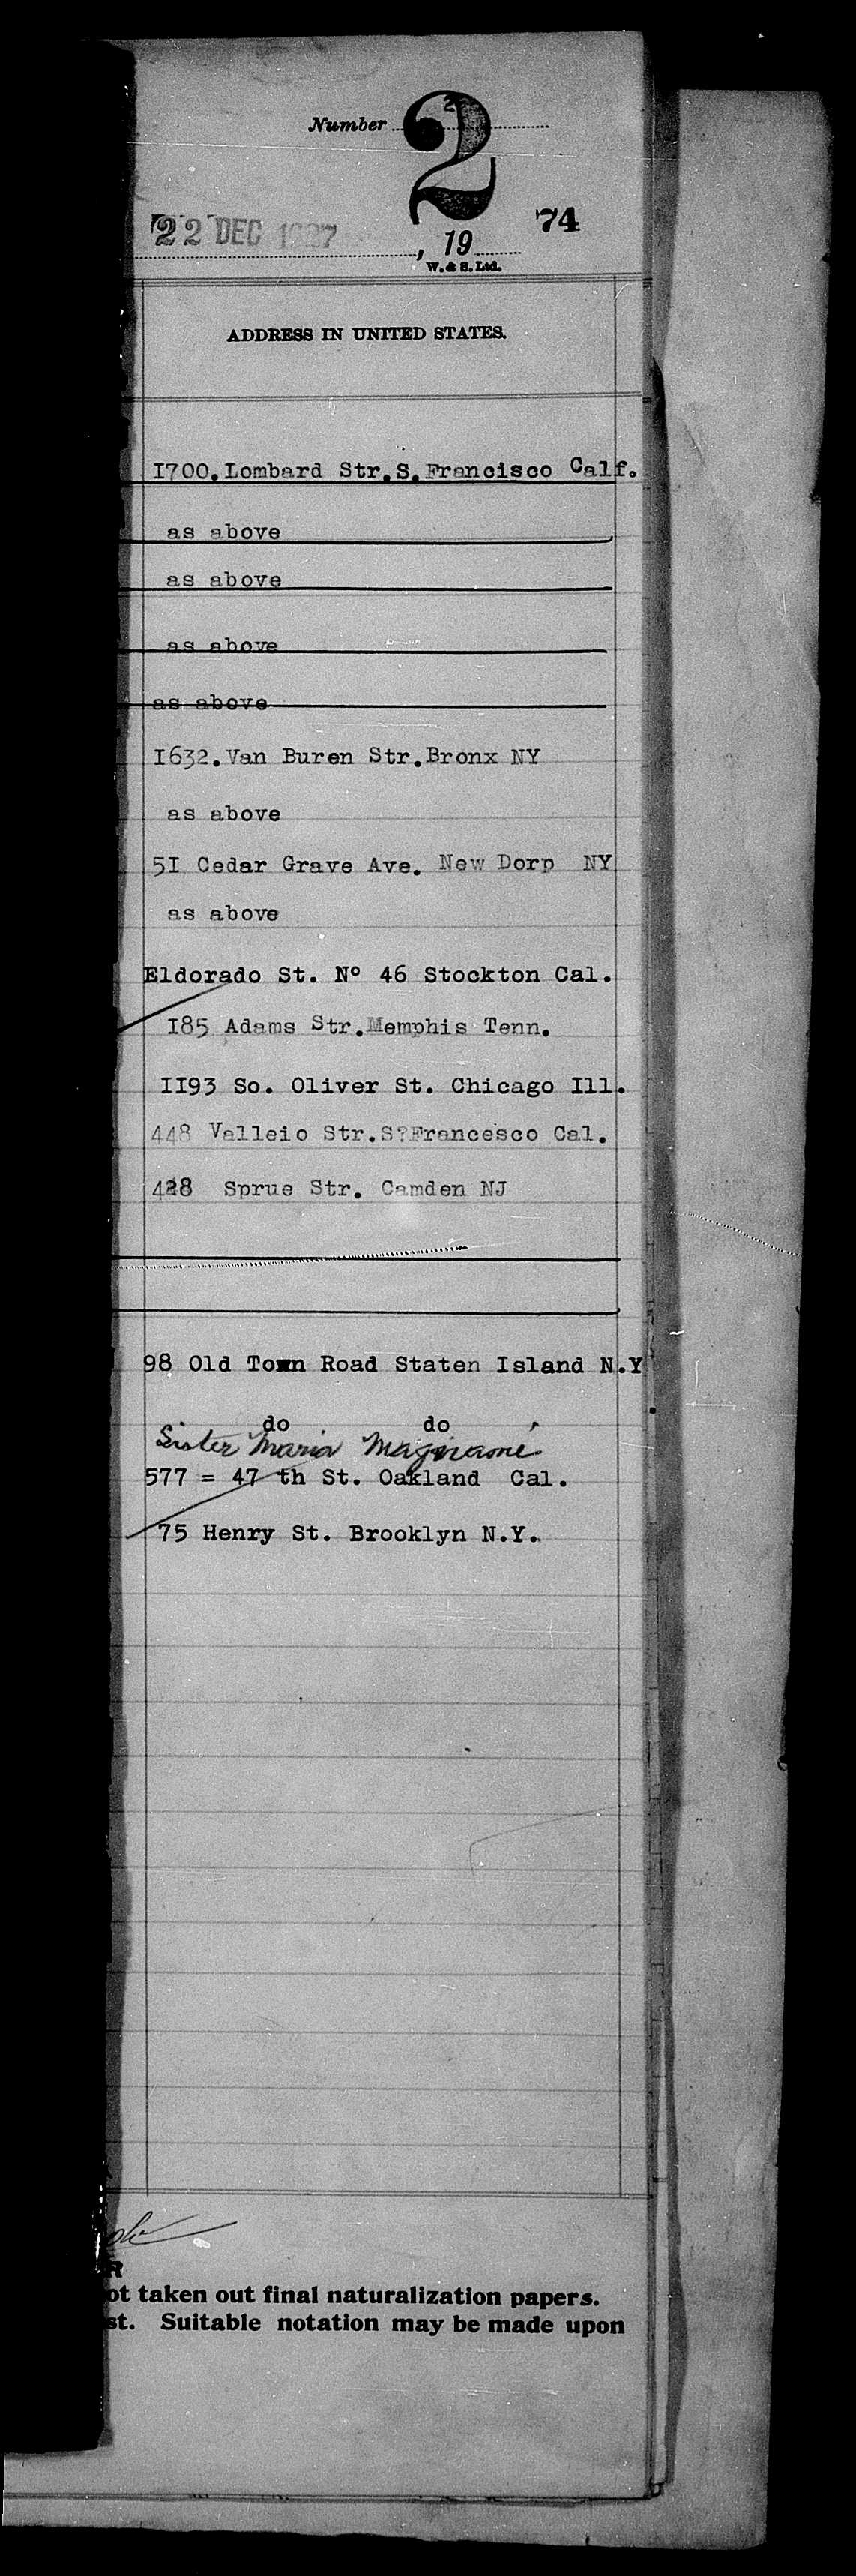 Number 2
2
22 DEC 1927, 19 74
W. & S. Ltd.
ADDRESS IN UNITED STATES.
I700.Lombard Str.S.Francisco Calf.
as above
as above
as above
as above
I632.Van Buren Str.Bronx NY
as above
5I Cedar Grave Ave. New Dorp NY
as above
Eldorado St. Nº 46 Stockton Cal.
I85 Adams Str.Memphis Tenn.
II93 So. Oliver St. Chicago Ill.
448 Valleio Str.S?Francesco Cal.
428 Sprue Str. Camden NJ
98 Old Town Road Staten Island N.Y
do do
Sister Maria
577 = 47 th St. Oakland Cal.
75 Henry St. Brooklyn N.Y.
R
ot taken out final naturalization papers.
st. Suitable notation may be made upon